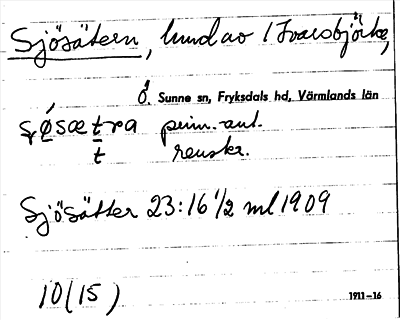 Sjösätern, lund av 1 Ivarsbjörke,
Ö. Sunne sn, Fryksdals hd, Värmlands län
sǿsætra prim.-ant.
t renskr.
Sjösätter 23:16 1/2 ml 1909
10(15)
1911-16